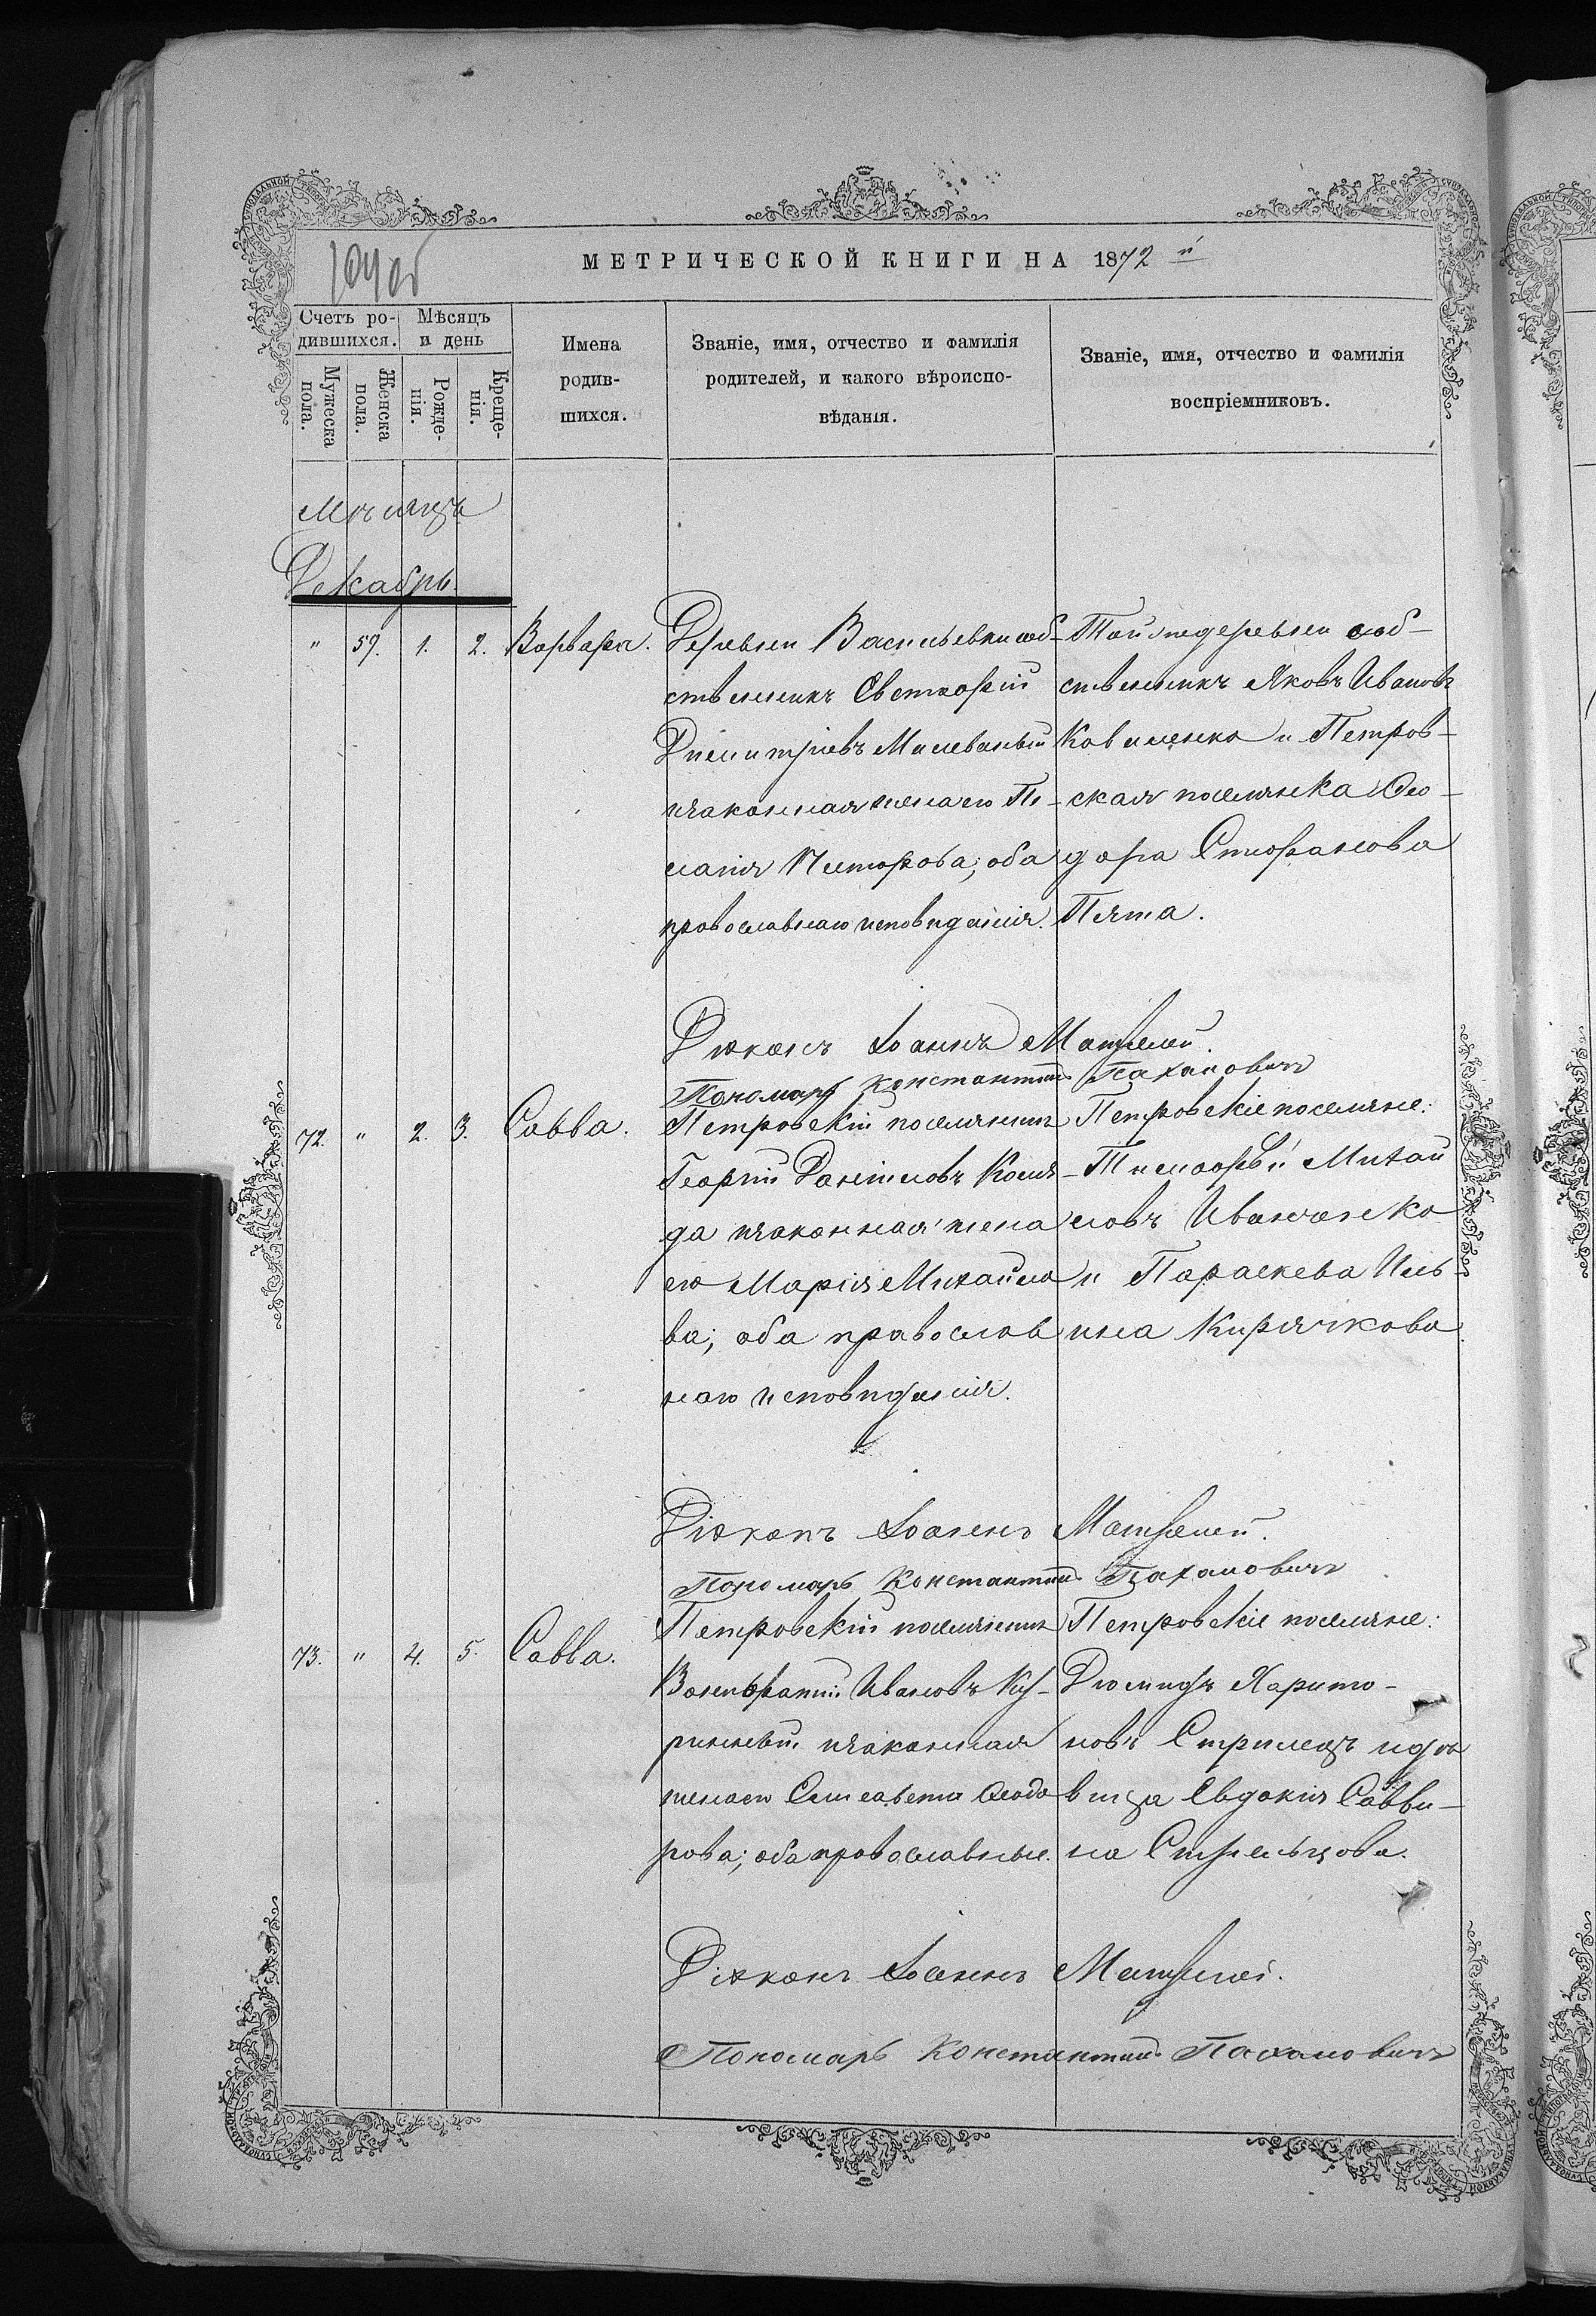 104 об
МЕТРИЧЕСКОЙ КНИГИ НА 1872 й
Счетъ ро-
дившихся.
Мѣсяцъ
и день
Мужеска
пола.
Женска
пола.
Рожде-
нія.
Креще-
нія.
Имена
родив-
шихся.
Званіе, имя, отчество и фамилія
родителей, и какого вѣроиспо-
вѣданія.
Званіе, имя, отчество и фамилія
воспріемниковъ.
Мѣсяцъ
Декабрь.
" 59. 1. 2. Варвара.
Деревни Васильевки соб-
ственникъ Евстафій
Димитріевъ Милеваный
и законная жена его Пе-
лагія Петрова; оба
православнаго исповѣданія.
Той же деревни соб-
ственникъ Яковъ Ивановъ
Коваленко и Петров-
ская поселянка Ѳео-
дора Стефанова
Пята.
Діаконъ Іоаннъ
Пономарь Константинъ Пахаловичъ
72. " 2. 3. Савва.
Петровскій поселянинъ
Георгій Даніиловъ Коля-
да и законная жена
его Марія Михайло
ва; оба православ
наго исповѣданія.
Петровскіе поселяне:
Тимофѣй Михай
ловъ Иванченко
и Параскева Иль-
ина Кирячкова
Діаконъ Іоаннъ
Пономарь Константинъ Пахаловичъ
73. " 4. 5. Савва.
Петровскій поселянинъ
Вонифатій Ивановъ Ку-
ринный и законная
жена его Елисавета Ѳеодо
рова; оба православные.
Петровскіе поселяне:
Діомидъ Харито-
новъ Стрилецъ и дѣ
вица Евдокія Савви-
на Стрельцова.
Діаконъ Іоаннъ
Пономарь Константинъ Пахаловичъ